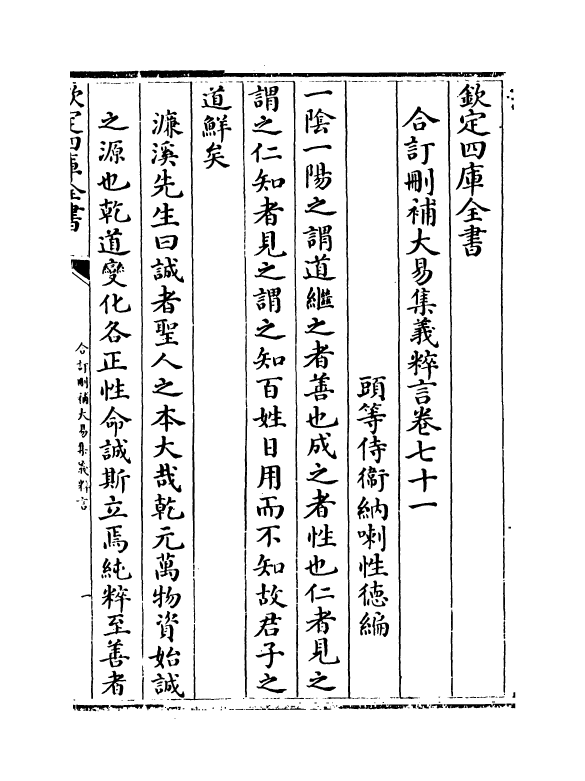 欽定四庫全書
合訂刪補大易集義粹言卷七十一
頭等侍衞納喇性德編
一陰一陽之謂道繼之者善也成之者性也仁者見之
謂之仁知者見之謂之知百姓日用而不知故君子之
道鮮矣
濂溪先生曰誠者聖人之本大哉乾元萬物資始誠
之源也乾道變化各正性命誠斯立焉純粹至善者
欽定四庫全書
合訂刪補大易集義粹言
一